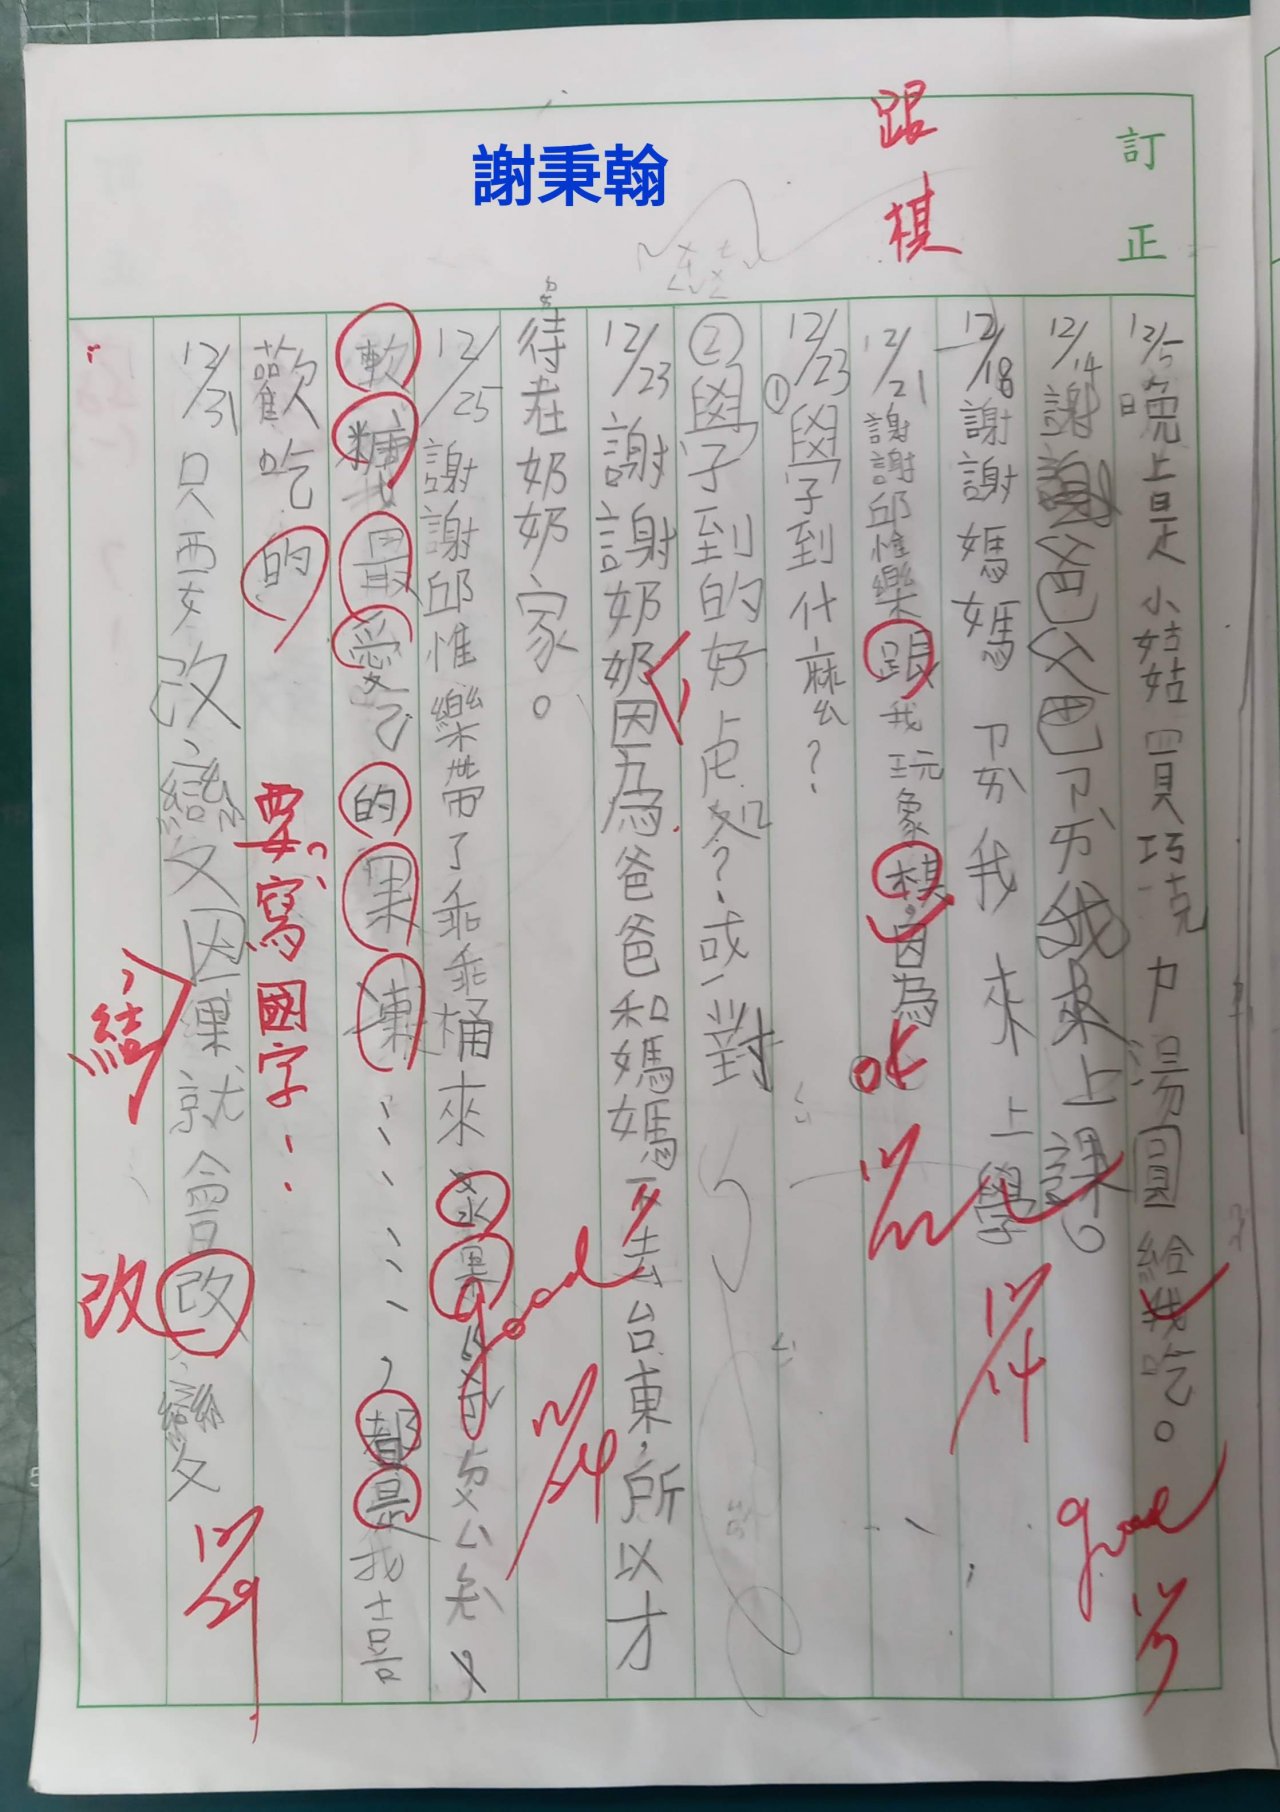 訂正
跟
棋
謝秉翰
12/5晚上是小姑姑買巧克ㄌ湯圓給我吃。
good
12/5
12/14謝謝爸爸ㄕㄞ我來上課。
12/18謝謝媽媽ㄗㄞ我來上學
12/14
12/21謝謝邱惟樂跟我玩象棋,因為
ok
12/23①學到什麼?
②學到的好處?或對
12/23謝謝奶奶因為爸爸和媽媽去台東,所以才
待在奶奶家。
good
12/24
12/25謝謝邱惟樂帶了乖乖桶來
軟糖、最愛的果凍……,都是我喜
歡吃的
要寫國字:
12/31只要改變因果就會改變
結
改
12/29